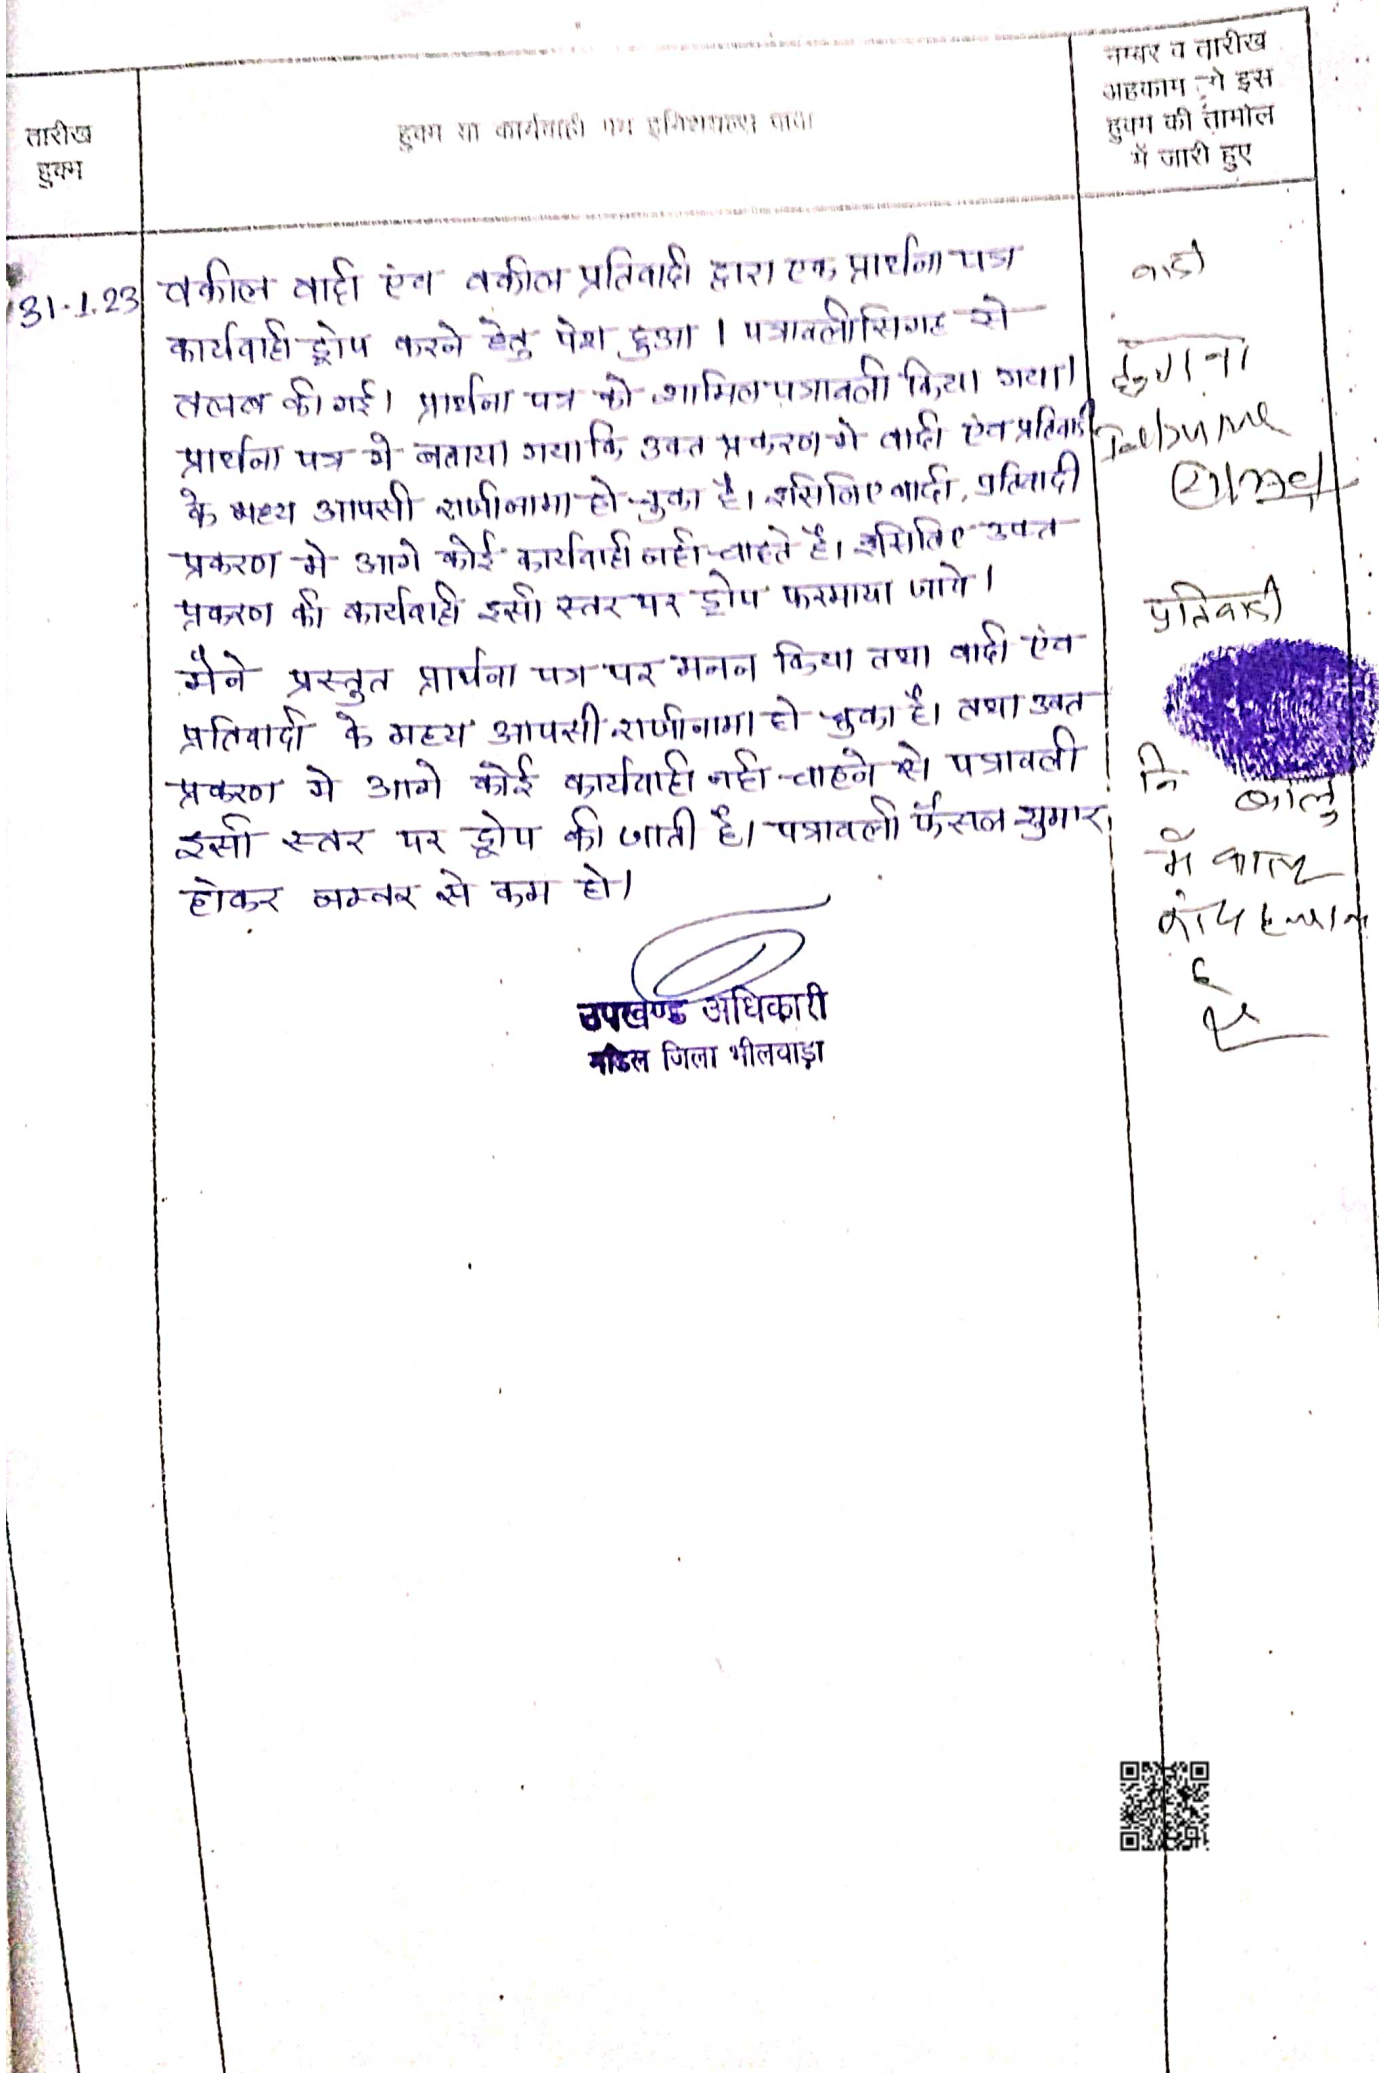 तारीख
हुक्म
हुक्म या कार्यवाही मय इनिशियल्स जज
नम्बर व तारीख
अहकाम जो इस
हुक्म की तामील
में जारी हुए
31.1.23
वकील वादी एंव वकील प्रतिवादी द्वारा एक प्रार्थना पत्र
कार्यवाही ड्रोप करने हेतु पेश हुआ । पत्रावली सिगह से
तलब की गई। प्रार्थना पत्र को शामिल पत्रावली किया गया।
प्रार्थना पत्र मे बताया गया कि उक्त प्रकरण मे वादी एंव प्रतिवादी
के मध्य आपसी राजीनामा हो चुका है। इसिलिए वादी, प्रतिवादी
प्रकरण मे आगे कोई कार्यवाही नही चाहते है। इसिलिए उक्त
प्रकरण की कार्यवाही इसी स्तर पर ड्रोप फरमाया जावे ।
मैने प्रस्तुत प्रार्थना पत्र पर मनन किया तथा वादी एंव
प्रतिवादी के मध्य आपसी राजीनामा हो चुका है। तथा उक्त
प्रकरण मे आगे कोई कार्यवाही नही चाहने से पत्रावली
इसी स्तर पर ड्रोप की जाती है। पत्रावली फैसल शुमार
होकर नम्बर से कम हो।
उपखण्ड अधिकारी
मांडल जिला भीलवाड़ा
वादी
प्रतिवादी
नि
बालु